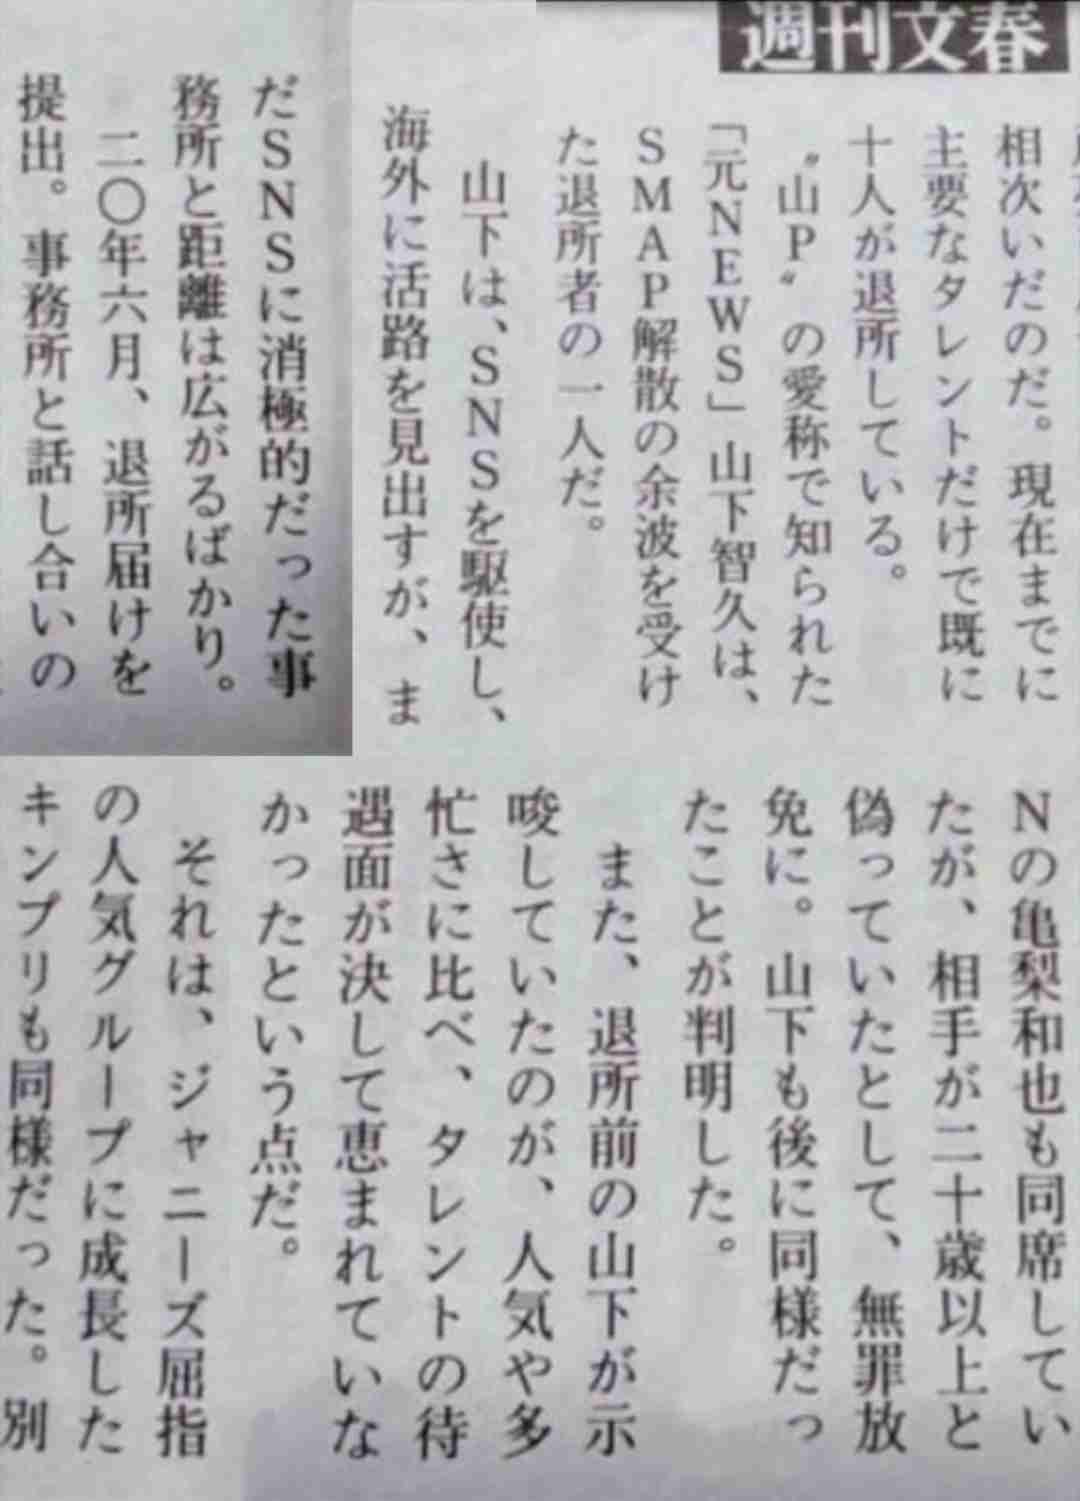 週刊文春
相次いだのだ。現在までに
主要なタレントだけで既に
十人が退所している。
〝山P〟の愛称で知られた
「元NEWS」山下智久は、
SMAP解散の余波を受け
た退所者の一人だ。
山下は、SNSを駆使し、
海外に活路を見出すが、ま
だSNSに消極的だった事
務所と距離は広がるばかり。
二〇年六月、退所届けを
提出。事務所と話し合いの
Nの亀梨和也も同席してい
たが、相手が二十歳以上と
偽っていたとして、無罪放
免に。山下も後に同様だっ
たことが判明した。
また、退所前の山下が示
唆していたのが、人気や多
忙さに比べ、タレントの待
遇面が決して恵まれていな
かったという点だ。
それは、ジャニーズ屈指
の人気グループに成長した
キンプリも同様だった。別